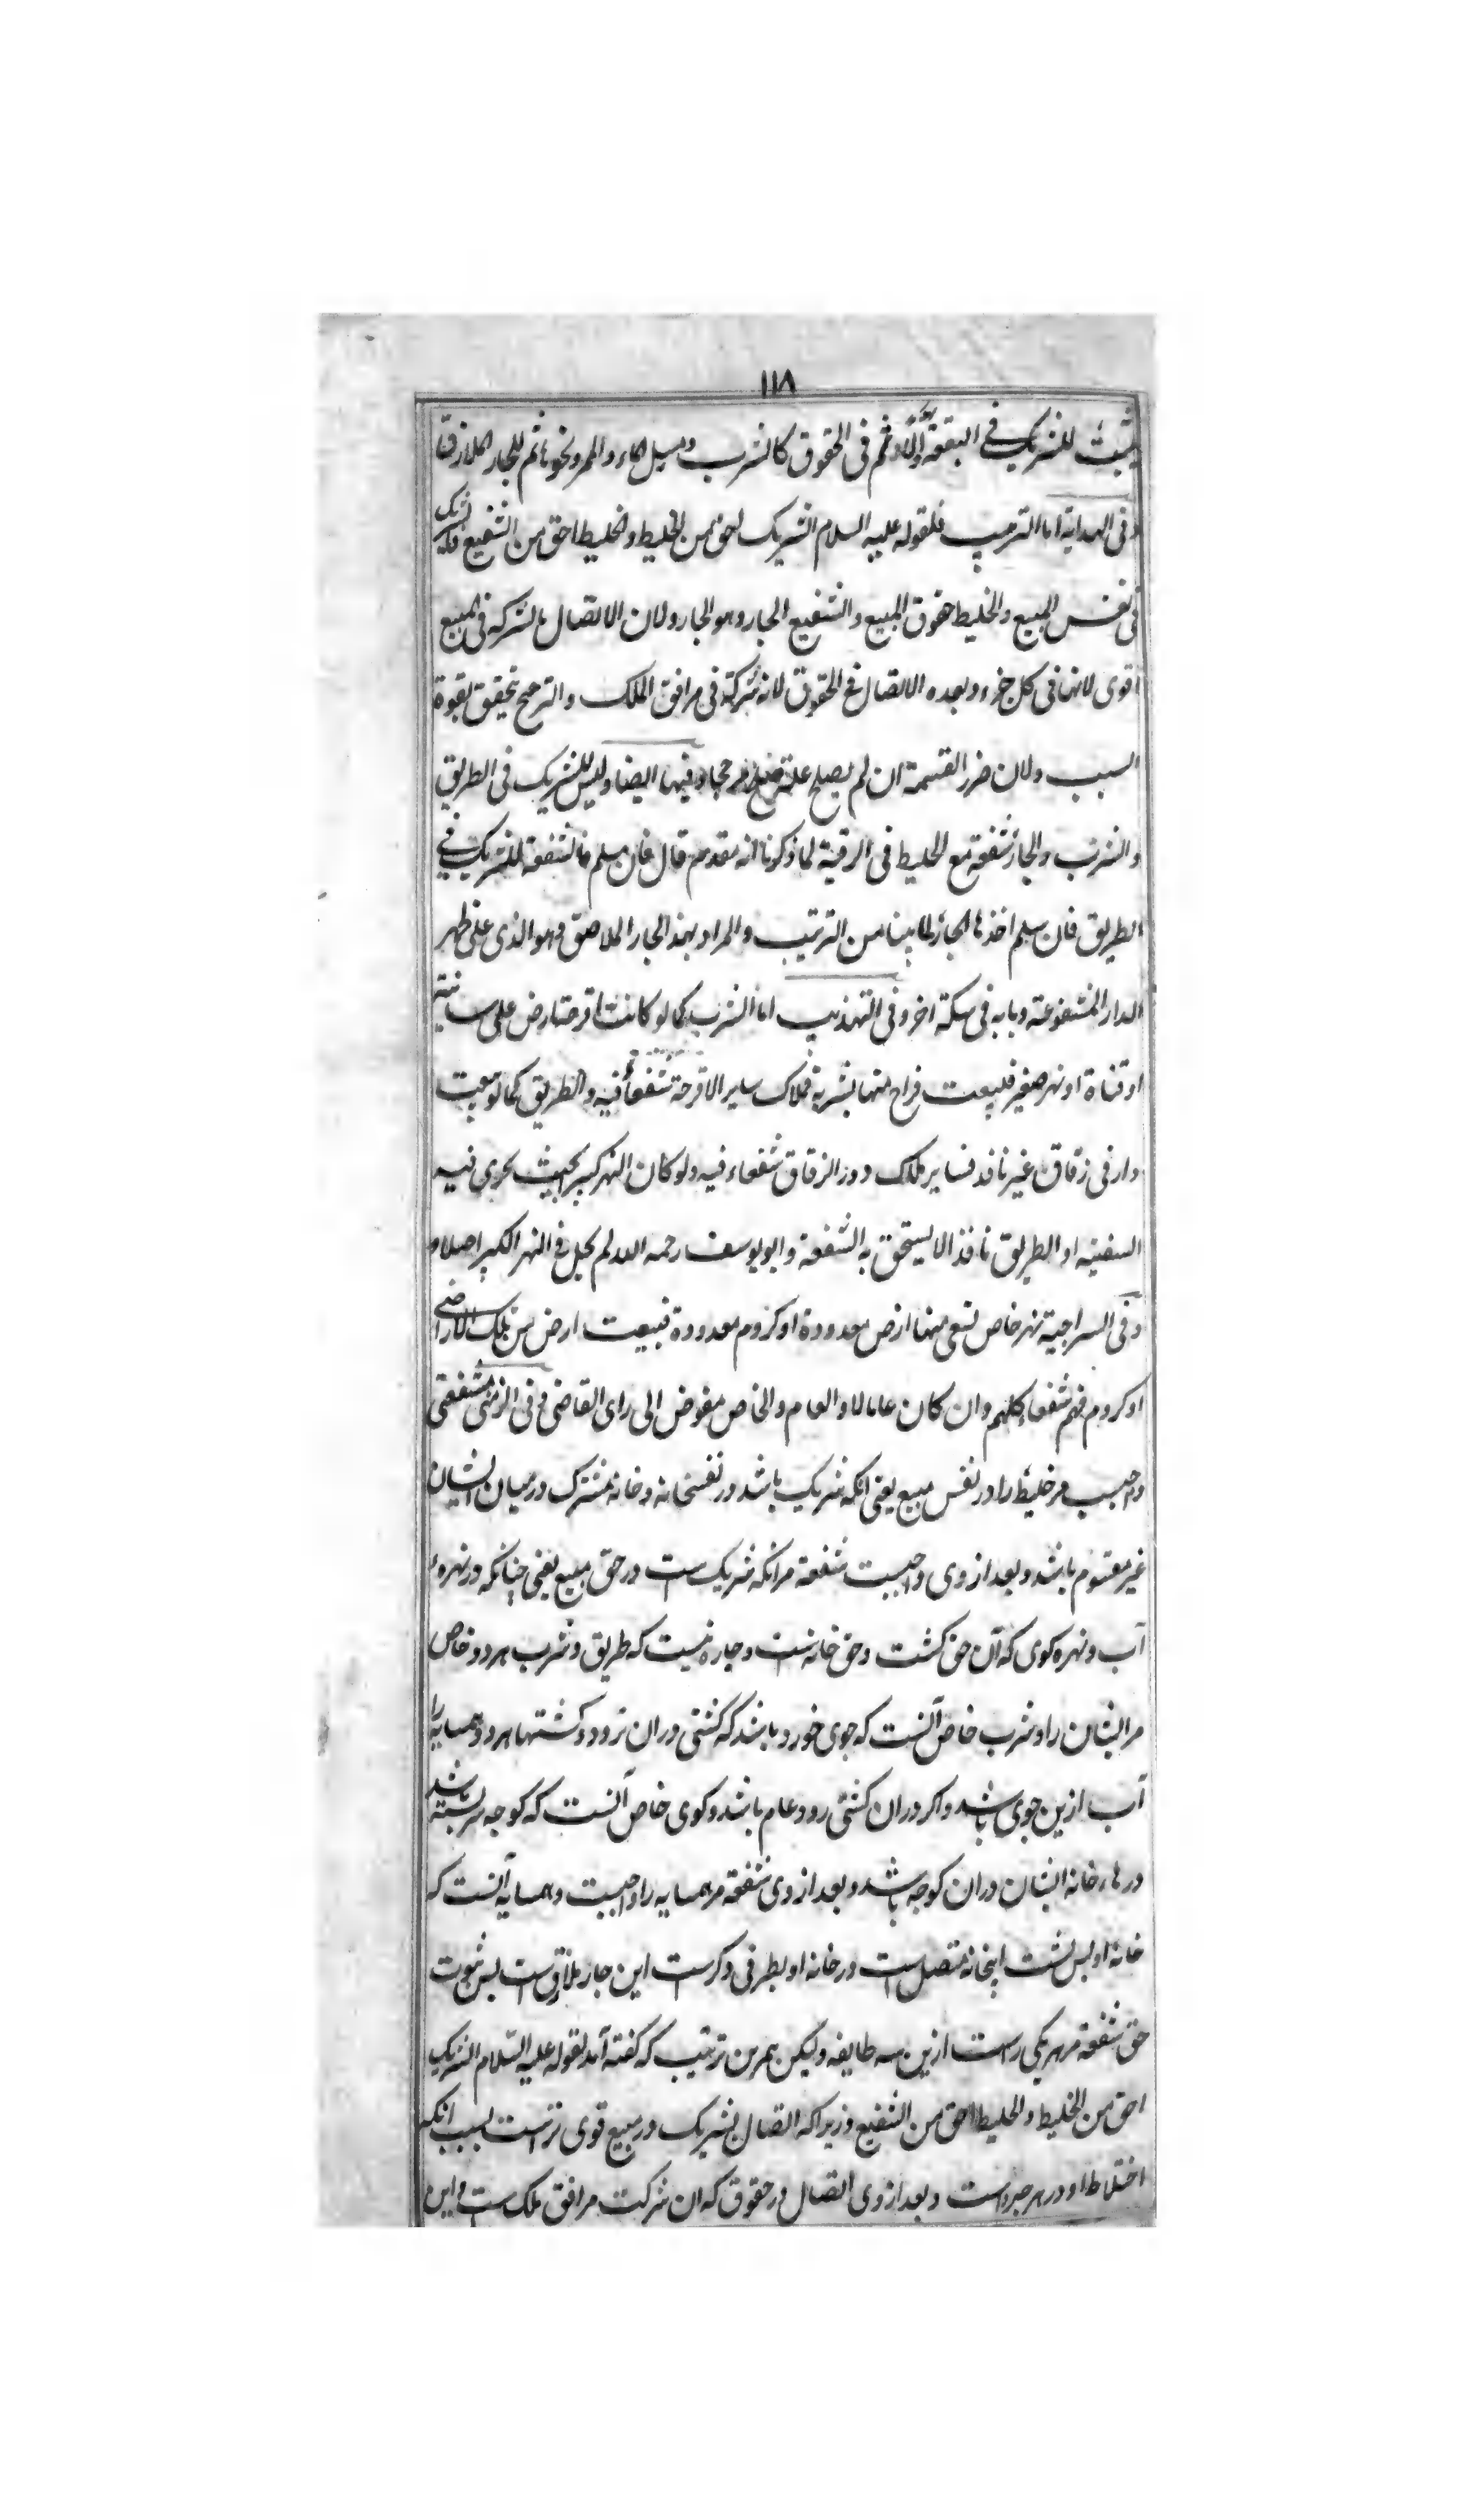 ١١٨
يثبت للشريك فى البقعة اولا و ثم فى الحقوق كالشرب ومسيل الماء والممر ونحوها ثم للجار الملازق
وفى الهداية اما الترتيب فلقوله عليه السلام الشريك احق من الخليط والخليط احق من الشفيع فالشريك
فى نفس المبيع والخليط حقوق المبيع والشفيع الجار وهو الجار ولان الاتصال بالشركه فى المبيع
اقوى لانها فى كل جزء وبعده الاتصال فى الحقوق لانه شركة فى مرافق الملك والترجيح تحقيق بقوة
السبب ولان ضرر القسمة ان لم يصلح علة صلح مرجحا وفيها ايضا وليس للشريك فى الطريق
والشرب والجار شفعة مع الخليط فى الرقبة لما ذكرنا انه مقدم قال فان سلم فالشفعة للشريك فى
الطريق فان سلم اخذها الجار لما بينا من الترتيب والمراد بهذا الجار الملاصق وهو الذى على ظهر
الدار المشفوعة وبابه فى سكة اخر وفى التهذيب اما الشرب كما لو كانت اقرحة ارض على ساقية
او قناة او نهر صغير فبيعت قراح منها بشربه فملاك ساير الاقرحة شفعاء فيه والطريق كما لو بيعت
دار فى زقاق غير نافذ فساير ملاك دور الزقاق شفعاء فيه ولو كان النهر كبير بحيث يجرى فيه
السفينه او الطريق نافذ الا يستحق به الشفعة وابو يوسف رحمه الله لم يجعل فى النهر الكبير اصلا و
وفى السراجية نهر خاص تسقى منها ارض معدودة او كروم معدودة فبيعت ارض من تلك الاراضى
او كروم فهم شفعاء كلهم وان كان عاما لا والعام والخاص مفوض الى راى القاضى وفى شفعتى
واجب مر خليط را در نفس مبيع يعنى انكه شريك باشد در نفس خانه و خانه مشترك درميان ايشان
غير مقسوم باشد وبعد از وى واجبست شفعة مر انكه شريك ست در حق مبيع يعنى چنانكه در نهره
آب و نهره كوى كه آن حق كشت وحق خانه ست وچاره نيست كه طريق و شرب هر دو خاص
مر ايشان را وشرب خاص آنست كه جوى خورد باشد كه كشتى دران نرود وكشتها هر دو همسايه را
آب ازين جوى باشد و اكر دران كشتى رود عام باشد وكوى خاص آنست كه كوچه سربسته باشد
درهاء خانه ايشان دران كوچه باشد وبعد از وى شفعة مر همسايه را واجبست وهمسايه آنست كه
خانه او پس پشت اينخانه متصل است در خانه او بطرفى دكر ست اين جار ملازق است پس ثبوت
حق شفعة مر هر يكى راست ازين سه طايفه وليكن بهمين ترتيب كه كفته آمد لقوله عليه السلام الشريك
احق من الخليط والخليط احق من الشفيع و زيراكه اتصال بشريك در مبيع قوى ترست بسبب انكه
اختلاط او در هر جزو است وبعد از وى اتصال در حقوق كه ان شركت مرافق ملك ست و اين